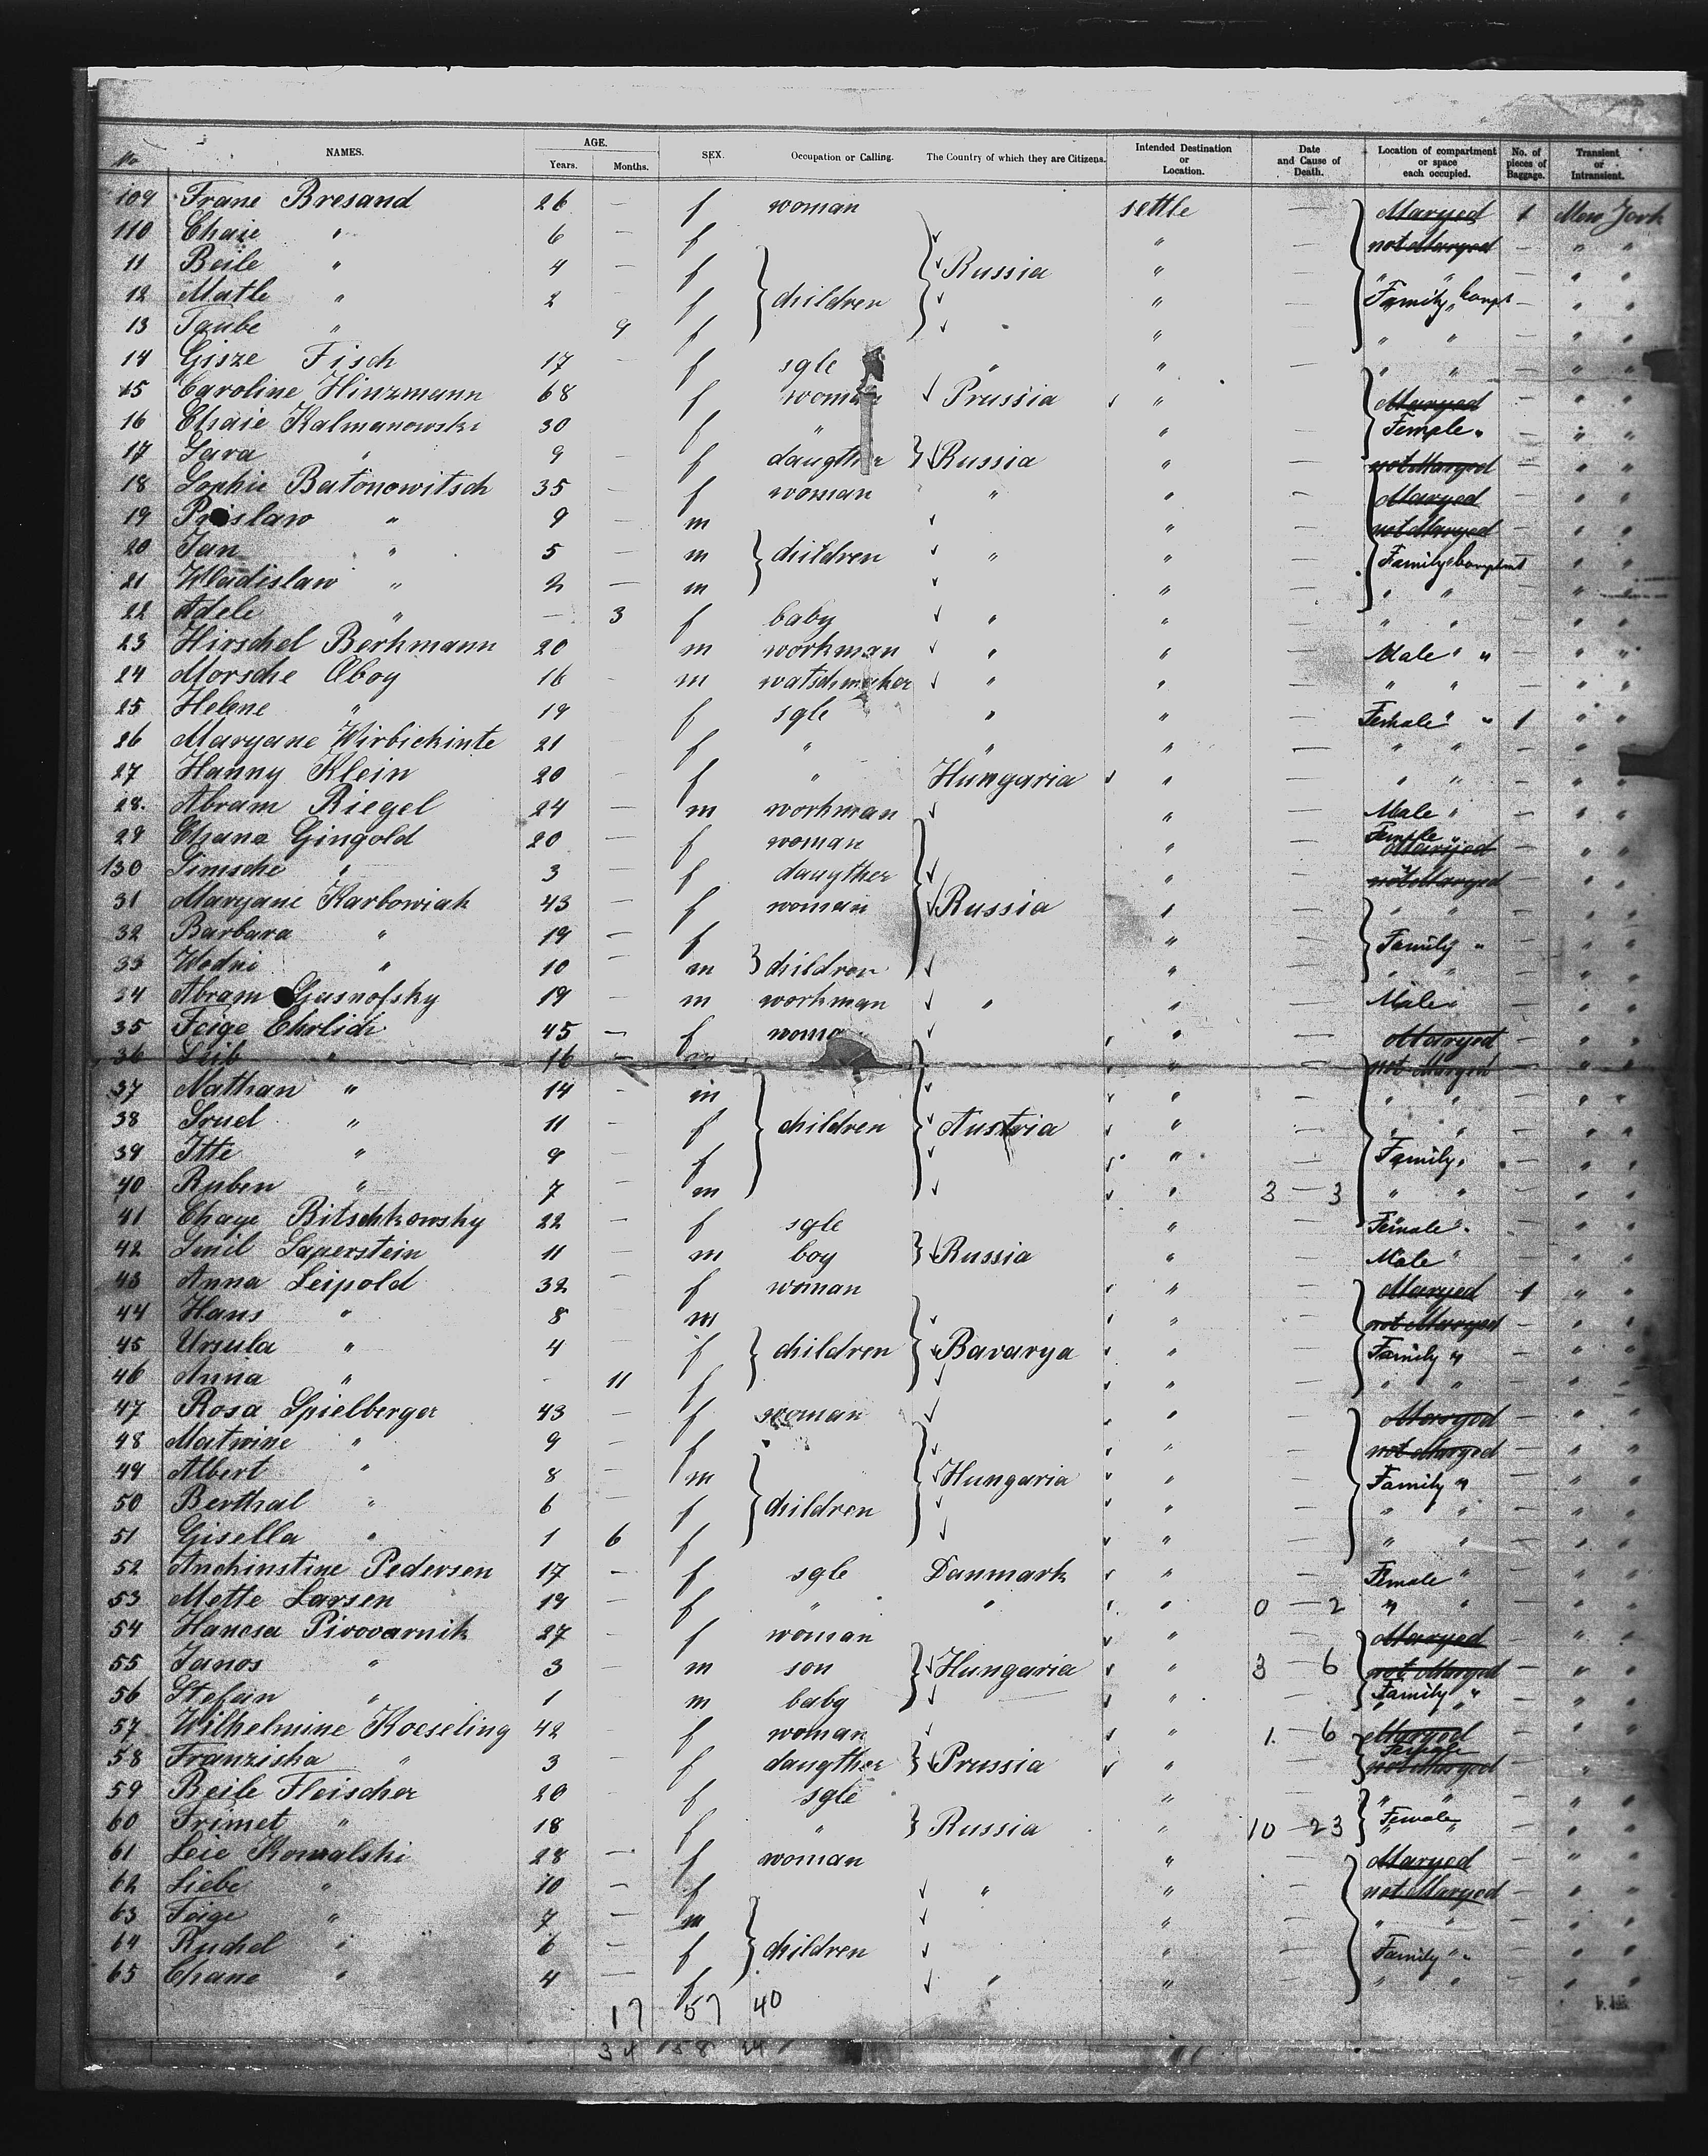 No NAMES. AGE. Years. Months. SEX. Occupation or Calling. The Country of which they are Citizens. Intended Destination or Location. Date and Cause of Death. Location of compartment or space each occupied. No. of pieces of Baggage. Transient or Intransient.
109 Frane Bresand 26 — f woman settle — Maryed 1 New York
110 Chaie " 6 — f " — not Maryed — " "
11 Beile " 4 — f Russia " — " " " "
12 Matle " 2 — f children " — Family " Compt — " "
13 Taube " 9 f " " — " " " "
14 Gisze Fisch 17 — f sgle " " — " " — " "
15 Caroline Hinzmann 68 — f woman Prussia " — Maryed — " "
16 Chaie Kalmanowski 30 — f " " — Female " — " "
17 Sara " 9 — f daugther Russia " — not Maryed — " "
18 Sophie Batonowitsch 35 — f woman " " — Maryed — " "
19 Prislaw " 9 — m " — not Maryed — " "
20 Jan " 5 — m children " " — Family Comptmt " "
21 Wladislaw " 2 — m " — " " — " "
22 Adele " — 3 f baby " " — " " — " "
23 Hirschel Berkmann 20 — m workman " " — Male " " — " "
24 Morsche Oboy 16 — m watschmaker " " — " " — " "
25 Helene " 19 — f sgle " " — Female " " 1 " "
26 Maryane Wirbickinte 21 — f " " " — " " — " "
27 Hanny Klein 20 — f " Hungaria " — " " — " "
28. Abram Riegel 24 — m workman " — Male " — " "
29 Chana Gingold 20 — f woman " — Female " Maryed — " "
130 Simsche " 3 — f daugther " — not Maryed — " "
31 Maryane Karbowiak 43 — f woman Russia " — " " — " "
32 Barbara " 19 — f " — Family " — " "
33 Wodni " 10 — m children " — " " — " "
34 Abram Gusnofsky 19 — m workman " " — Male " — " "
35 Feige Ehrlich 45 — f woma " — Maryed — " "
36 Leib " 16 — m " — not Maryed — " "
37 Nathan " 14 — m " — " " — " "
38 Srul " 11 — f children Austria " — " " — " "
39 Itte " 9 — f " — Family " — " "
40 Ruben " 7 — m " 3 — 3 " " — " "
41 Chaye Bitschkowsky 22 — f sgle " — Female " — " "
42 Smil Saperstein 11 — m boy Russia " — Male " — " "
43 Anna Leipold 32 — f woman " — Maryed 1 " "
44 Hans " 8 — m " — not Maryed — " "
45 Ursula " 4 — f children Bavarya " — Family " — " "
46 Anna " - 11 f " — " " — " "
47 Rosa Spielberger 43 — f woman " — Maryed — " "
48 Matwine " 9 — f " — not Maryed — " "
49 Albert " 8 — m Hungaria " — Family " — " "
50 Berthal " 6 — f children " — " " — " "
51 Gisella " 1 6 f " — " " — " "
52 Anchinstine Pedersen 17 — f sgle Danmark " — Female " — " "
53 Mette Larsen 19 — f " " " 0 — 2 " " — " "
54 Hancsa Pivovarnik 27 — f woman " — Maryed — " "
55 Janos " 3 — m son Hungaria " 3 — 6 not Maryed — " "
56 Stefan " 1 — m baby " — Family " — " "
57 Wilhelmine Koeseling 42 — f woman " 1 — 6 Maryed — " "
58 Franziska " 3 — f daugther Prussia " — Female not Maryed — " "
59 Beile Fleischer 20 — f sgle " — " " — " "
60 Frimet " 18 — f " Russia " 10 — 23 Female " — " "
61 Leie Kowalski 28 — f woman " — Maryed — " "
62 Liebe " 10 — f " " — not Maryed — " "
63 Feige " 7 — m " — " " — " "
64 Ruchel " 6 — f children " — Family " " — " "
65 Chane " 4 — f " " — " " — " "
17 57 40
34 158 241